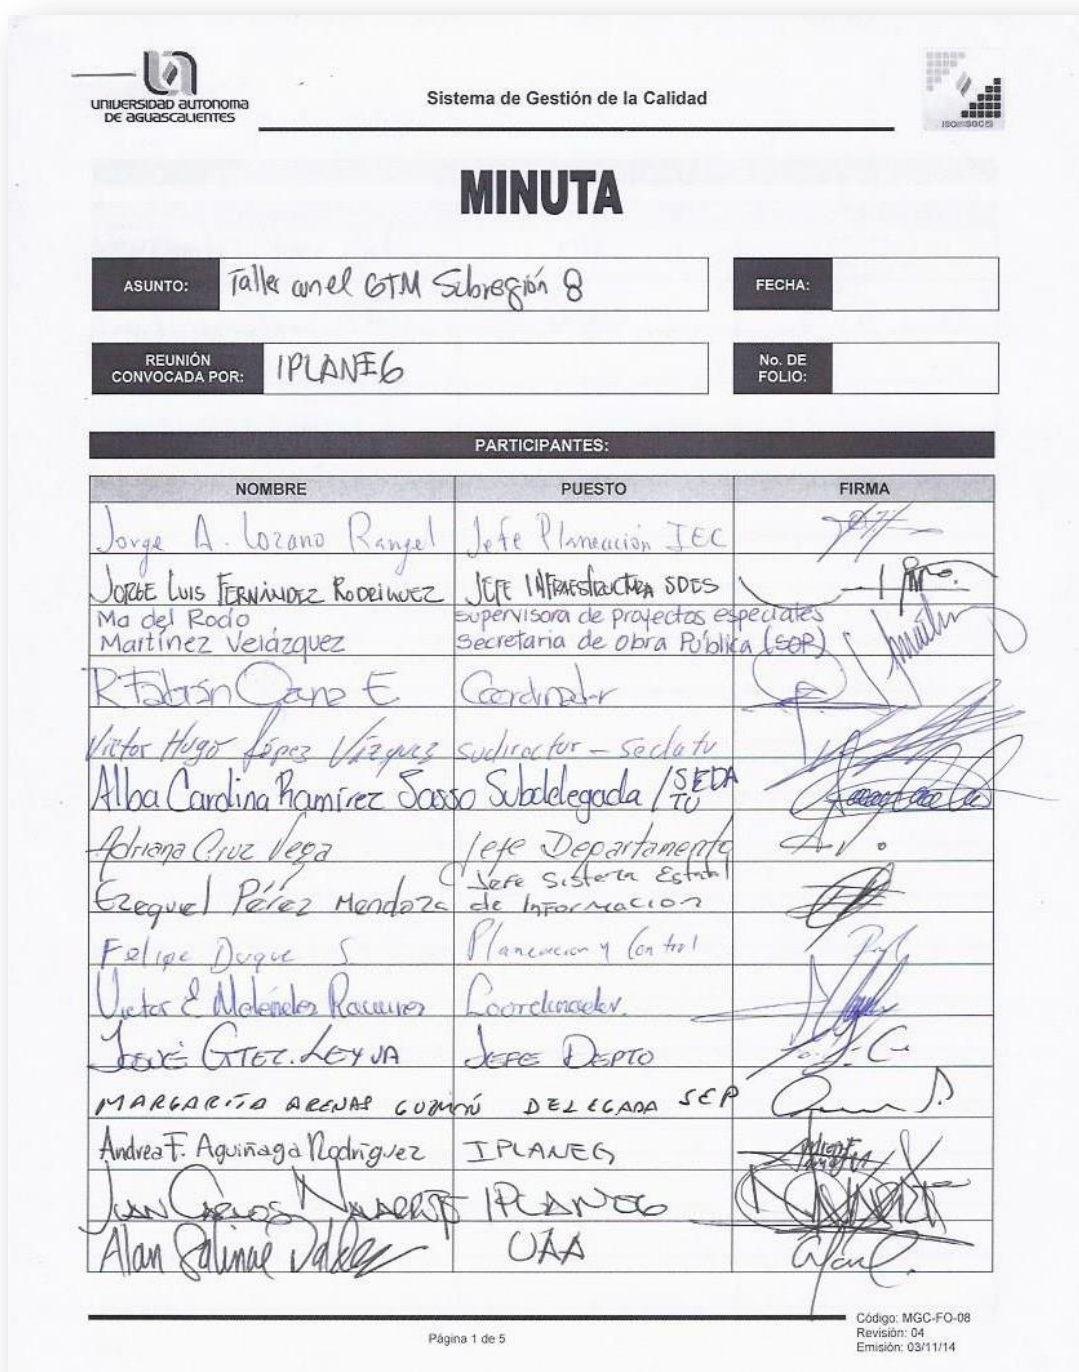 UNIVERSIDAD AUTONOMA
DE AGUASCALIENTES
Sistema de Gestión de la Calidad
MINUTA
ASUNTO: Taller con el GTM Subregión 8
FECHA:
REUNIÓN
CONVOCADA POR: IPLANEG
No. DE
FOLIO:
PARTICIPANTES:
NOMBRE PUESTO FIRMA
Jorge A. Lozano Rangel Jefe Planeación IEC
JORGE LUIS FERNÁNDEZ RODRIGUEZ JEFE INFRAESTRUCTURA SDES
Ma del Rodo supervisora de proyectos especiales
Martínez Velázquez Secretaria de Obra Pública (SOP)
R Fabián Cano E Coordinador
Victor Hugo López Vázquez sudirector - Sedatu
Alba Carolina Ramírez Sasso Subdelegada / SEDA
TU
Adriana Cruz Vega Jefe Departamento
Ezequiel Pérez Mendoza Jefe Sistema Estatal
de Informacion
Felipe Duque S. Planeacion y Control
Victor E Meléndez Ramirez Coordinador.
JOSUÉ GTEZ. LEYVA JEFE DEPTO
MARGARITA ARENAS GUZMÁN DELEGADA SEP
Andrea F. Aguiñaga Rodríguez IPLANEG
JUAN CARLOS NAVARRETE IPLANEG
Alan Salinas UAA
Página 1 de 5
Código: MGC-FO-08
Revisión: 04
Emisión: 03/11/14